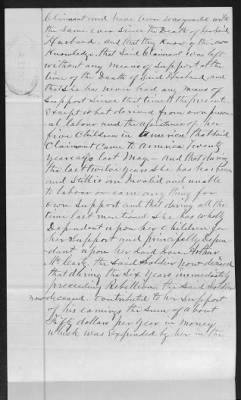 Claimant and have been acquainted with
the same ever since the Death of her said
Husband. And that they know of their own
Knowledge, that said Claimant was left
without any means of Support at the
time of the Death of said Husband and
that she has never had any means of
Support since that time to the present
Except what derived from own personal
labour and the assistance of her
five Children in America, that said
Claimant came to America twenty
years ago last May. And that during
the last twelve years She has has been
and still is an invalid and unable
to labour or earn any thing for
own Support and that during all the
time last mentioned She has wholly
Dependent upon her Children for
her Support and principally Depen
dant upon her said son Arthur
McCarty the said Soldier now deceased
that during the Six Years immediately
preceeding Rebellion the said Soldier
now deceased. Contributed to her Support
of his earnings the sum of about
Fifty dollars per Year in money
which was expended by her in the